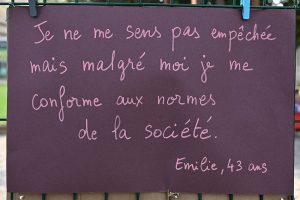 Je ne me sens pas empêchée
mais malgré moi je me
conforme aux normes
de la société.
Emilie, 43 ans